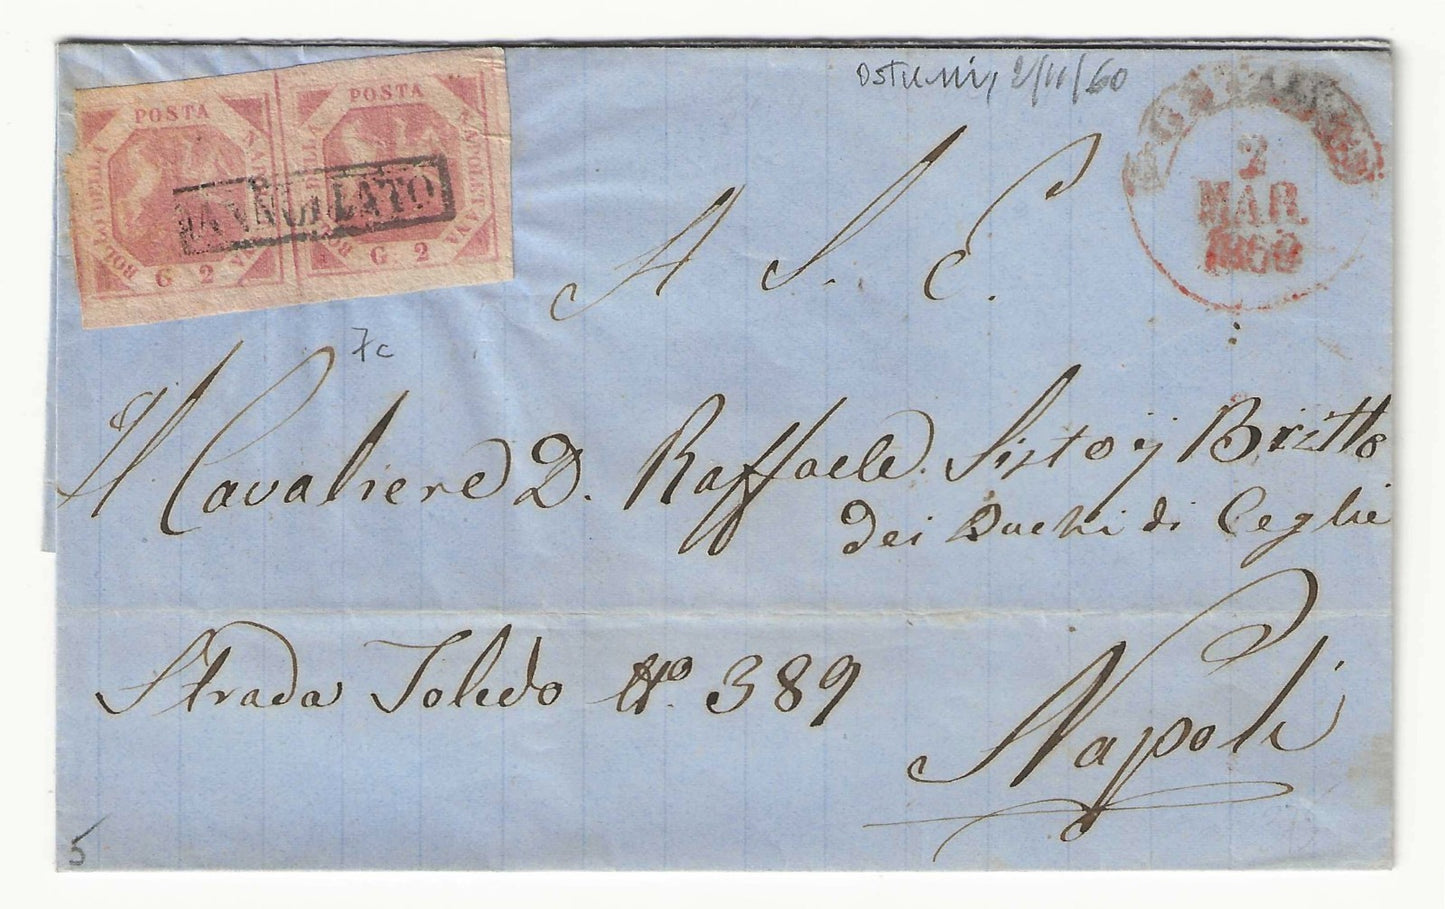 Ostuni, 2/11/60
POSTA
BOLLO DELLA
NA
G. 2
POSTA
NAPOLETANA
G. 2
ANNULLATO
2
MAR.
1860
7c
A S. E.
Il Cavaliere D. Raffaele Sisto y Britto
dei Duchi di Ceglie
Strada Toledo No. 389
Napoli
5